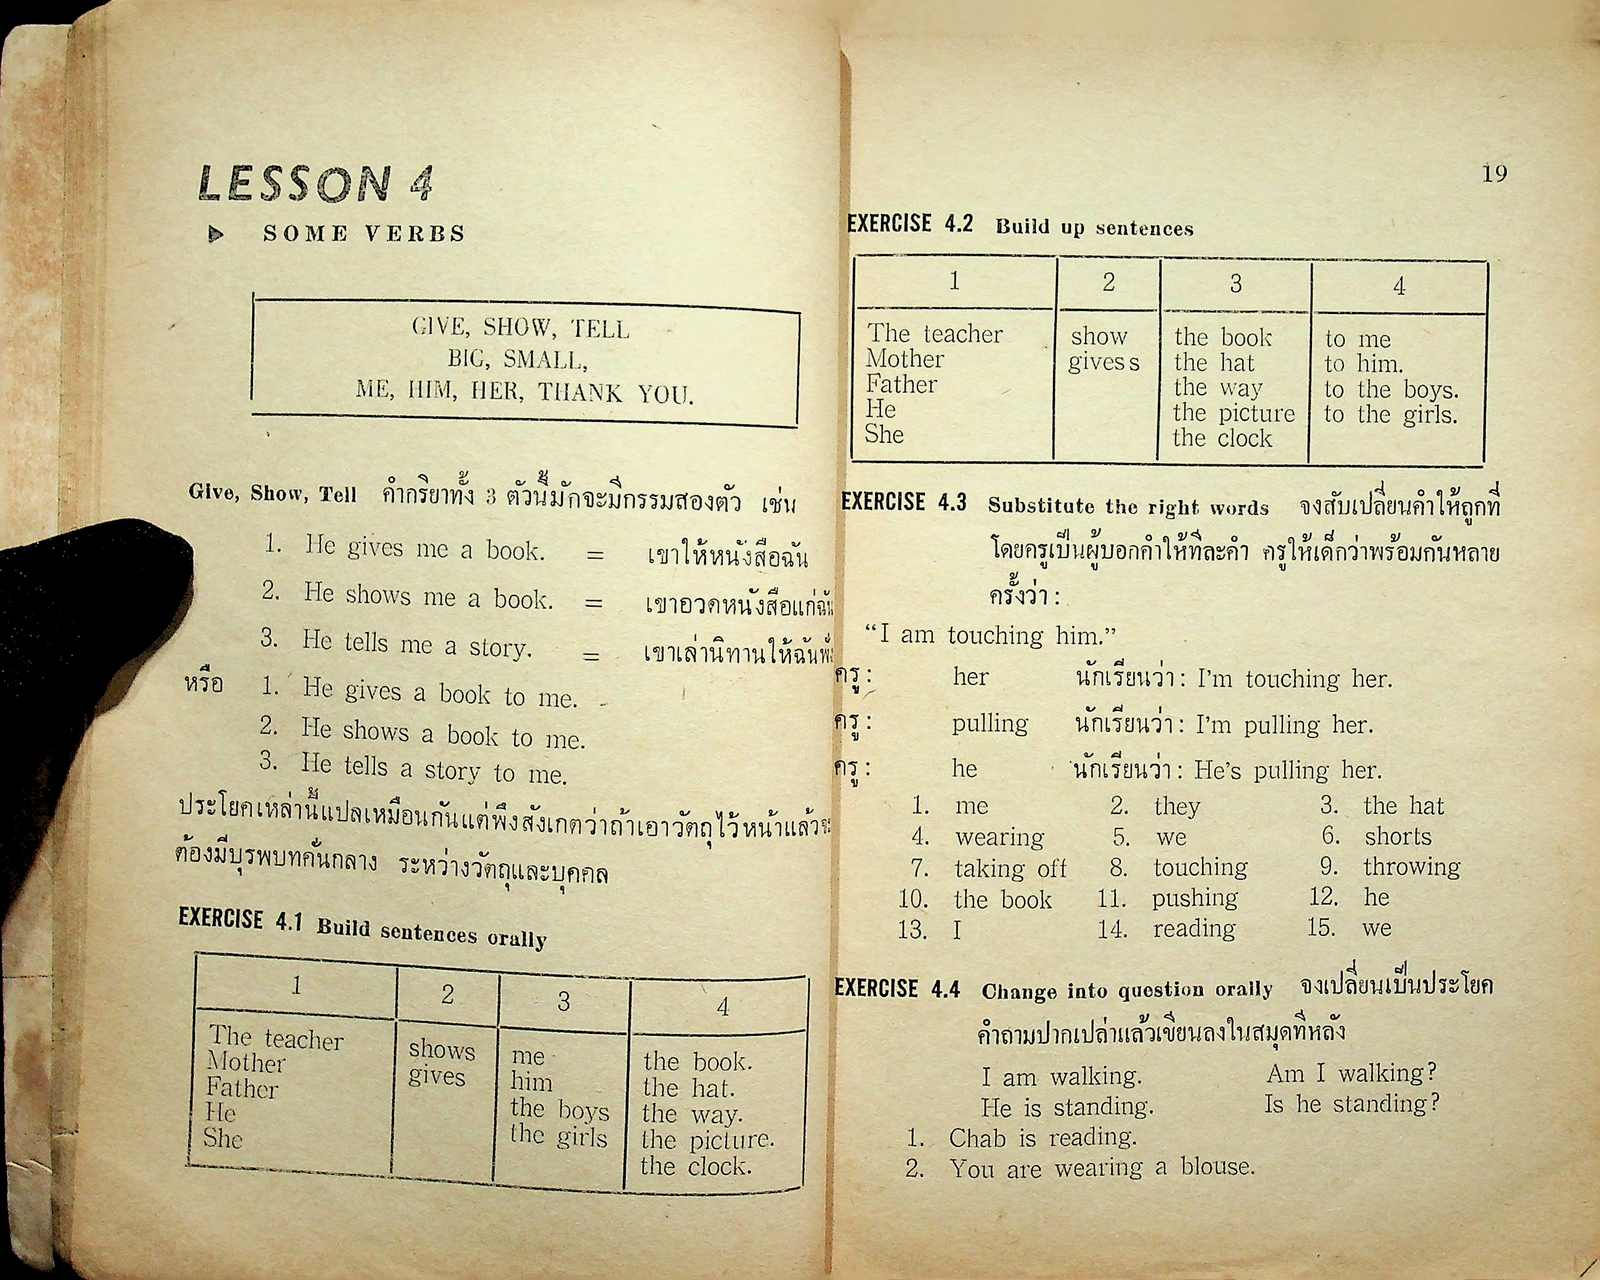 LESSON 4
SOME VERBS
GIVE, SHOW, TELL
BIG, SMALL,
ME, HIM, HER, THANK YOU.
Give, Show, Tell คำกริยาทั้ง 3 ตัวนี้มักจะมีกรรมสองตัว เช่น
1. He gives me a book. = เขาให้หนังสือฉัน
2. He shows me a book. = เขาอวดหนังสือแก่ฉัน
3. He tells me a story. = เขาเล่านิทานให้ฉันฟัง
หรือ 1. He gives a book to me.
2. He shows a book to me.
3. He tells a story to me.
ประโยคเหล่านี้แปลเหมือนกันแต่พึงสังเกตว่าถ้าเอาวัตถุไว้หน้าแล้วจะ
ต้องมีบุรพบทคั่นกลาง ระหว่างวัตถุและบุคคล
EXERCISE 4.1 Build sentences orally
1 2 3 4
The teacher shows me the book.
Mother gives him the hat.
Father the boys the way.
He the girls the picture.
She the clock.
19
EXERCISE 4.2 Build up sentences
1 2 3 4
The teacher show the book to me
Mother gives s the hat to him.
Father the way to the boys.
He the picture to the girls.
She the clock
EXERCISE 4.3 Substitute the right words จงสับเปลี่ยนคำให้ถูกที่
โดยครูเป็นผู้บอกคำให้ทีละคำ ครูให้เด็กว่าพร้อมกันหลาย
ครั้งว่า :
“I am touching him.”
ครู : her นักเรียนว่า : I'm touching her.
ครู : pulling นักเรียนว่า : I'm pulling her.
ครู : he นักเรียนว่า : He's pulling her.
1. me 2. they 3. the hat
4. wearing 5. we 6. shorts
7. taking off 8. touching 9. throwing
10. the book 11. pushing 12. he
13. I 14. reading 15. we
EXERCISE 4.4 Change into question orally จงเปลี่ยนเป็นประโยค
คำถามปากเปล่าแล้วเขียนลงในสมุดทีหลัง
I am walking. Am I walking?
He is standing. Is he standing?
1. Chab is reading.
2. You are wearing a blouse.